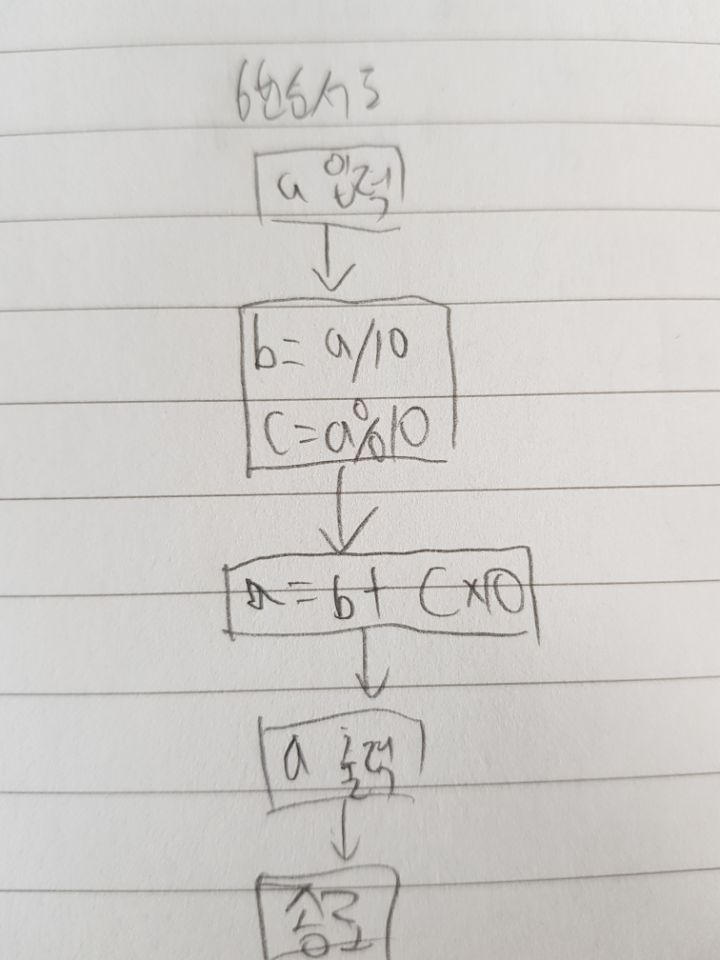 6번 순서도
a 입력
b = a/10
C = a%10
a = b + C×10
a 출력
종료